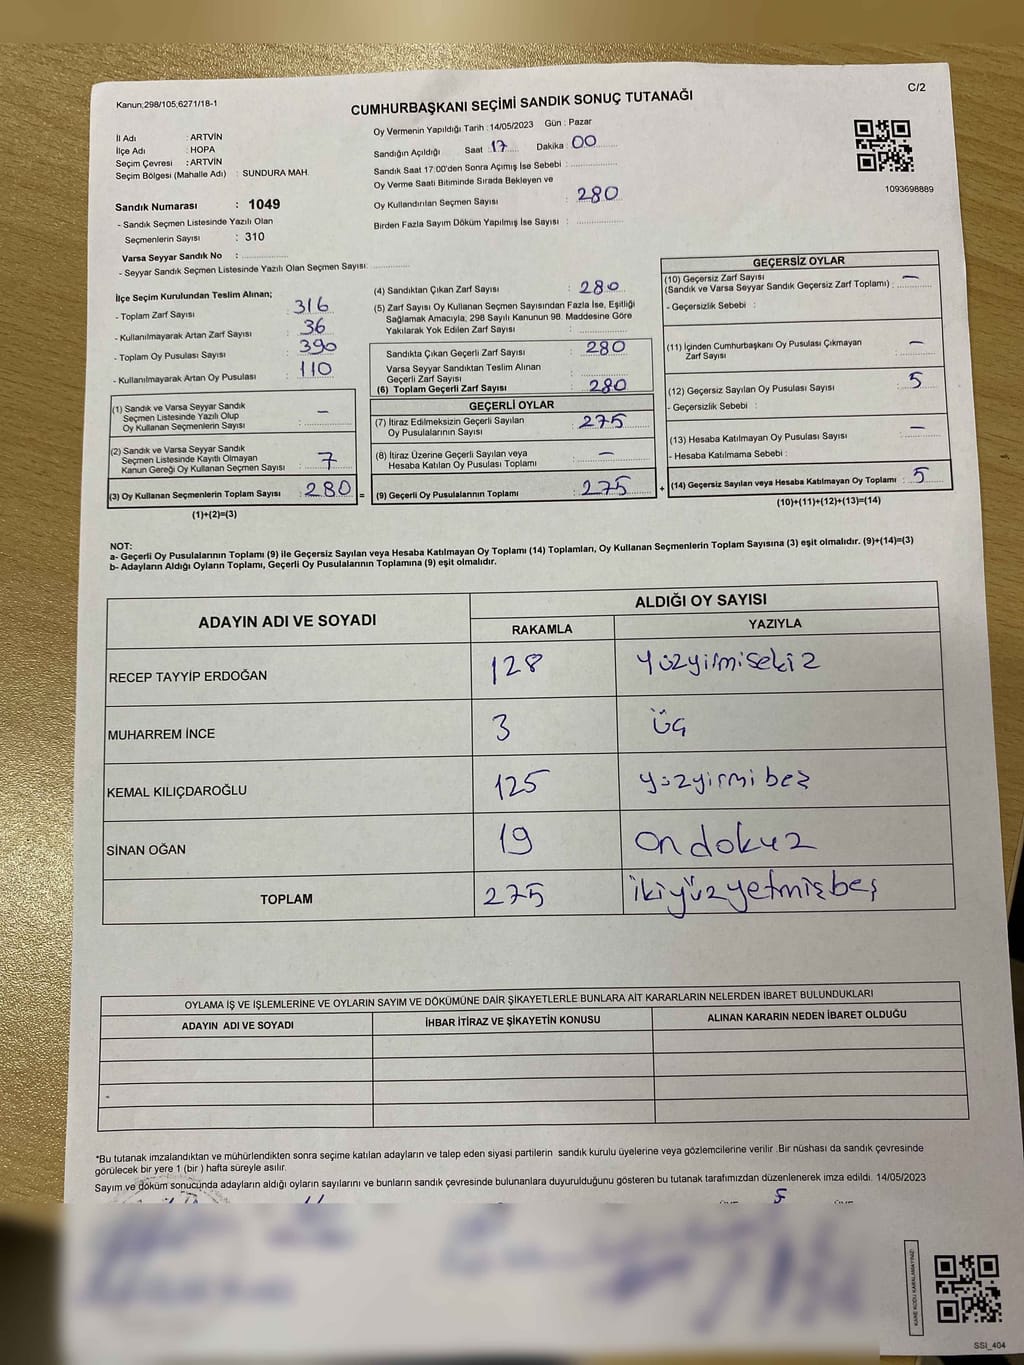 Kanun;298/105,6271/18-1
C/2
CUMHURBAŞKANI SEÇİMİ SANDIK SONUÇ TUTANAĞI
İl Adı : ARTVİN
İlçe Adı : HOPA
Seçim Çevresi : ARTVİN
Seçim Bölgesi (Mahalle Adı) : SUNDURA MAH.
Sandık Numarası : 1049
- Sandık Seçmen Listesinde Yazılı Olan
Seçmenlerin Sayısı : 310
Varsa Seyyar Sandık No :
- Seyyar Sandık Seçmen Listesinde Yazılı Olan Seçmen Sayısı:
Oy Vermenin Yapıldığı Tarih : 14/05/2023 Gün : Pazar
Sandığın Açıldığı Saat : 17 Dakika : 00
Sandık Saat 17:00'den Sonra Açımış İse Sebebi :
Oy Verme Saati Bitiminde Sırada Bekleyen ve
Oy Kullandırılan Seçmen Sayısı : 280
Birden Fazla Sayım Döküm Yapılmış İse Sayısı :
1093698889
İlçe Seçim Kurulundan Teslim Alınan;
- Toplam Zarf Sayısı : 316
- Kullanılmayarak Artan Zarf Sayısı : 36
- Toplam Oy Pusulası Sayısı : 390
- Kullanılmayarak Artan Oy Pusulası : 110
(1) Sandık ve Varsa Seyyar Sandık
Seçmen Listesinde Yazılı Olup
Oy Kullanan Seçmenlerin Sayısı : –
(2) Sandık ve Varsa Seyyar Sandık
Seçmen Listesinde Kayıtlı Olmayan
Kanun Gereği Oy Kullanan Seçmen Sayısı : 7
(3) Oy Kullanan Seçmenlerin Toplam Sayısı : 280 =
(1)+(2)=(3)
(4) Sandıktan Çıkan Zarf Sayısı : 280
(5) Zarf Sayısı Oy Kullanan Seçmen Sayısından Fazla İse, Eşitliği
Sağlamak Amacıyla; 298 Sayılı Kanunun 98. Maddesine Göre
Yakılarak Yok Edilen Zarf Sayısı :
Sandıkta Çıkan Geçerli Zarf Sayısı : 280
Varsa Seyyar Sandıktan Teslim Alınan
Geçerli Zarf Sayısı :
(6) Toplam Geçerli Zarf Sayısı : 280
GEÇERLİ OYLAR
(7) İtiraz Edilmeksizin Geçerli Sayılan
Oy Pusulalarının Sayısı : 275
(8) İtiraz Üzerine Geçerli Sayılan veya
Hesaba Katılan Oy Pusulası Toplamı : –
(9) Geçerli Oy Pusulalarının Toplamı : 275 +
GEÇERSİZ OYLAR
(10) Geçersiz Zarf Sayısı
(Sandık ve Varsa Seyyar Sandık Geçersiz Zarf Toplamı) : –
- Geçersizlik Sebebi :
(11) İçinden Cumhurbaşkanı Oy Pusulası Çıkmayan
Zarf Sayısı : –
(12) Geçersiz Sayılan Oy Pusulası Sayısı : 5
- Geçersizlik Sebebi :
(13) Hesaba Katılmayan Oy Pusulası Sayısı : –
- Hesaba Katılmama Sebebi :
(14) Geçersiz Sayılan veya Hesaba Katılmayan Oy Toplamı : 5
(10)+(11)+(12)+(13)=(14)
NOT:
a- Geçerli Oy Pusulalarının Toplamı (9) ile Geçersiz Sayılan veya Hesaba Katılmayan Oy Toplamı (14) Toplamları, Oy Kullanan Seçmenlerin Toplam Sayısına (3) eşit olmalıdır. (9)+(14)=(3)
b- Adayların Aldığı Oyların Toplamı, Geçerli Oy Pusulalarının Toplamına (9) eşit olmalıdır.
ADAYIN ADI VE SOYADI
ALDIĞI OY SAYISI
RAKAMLA YAZIYLA
RECEP TAYYİP ERDOĞAN 128 yüzyirmisekiz
MUHARREM İNCE 3 üç
KEMAL KILIÇDAROĞLU 125 yüzyirmibeş
SİNAN OĞAN 19 on dokuz
TOPLAM 275 ikiyüzyetmişbeş
OYLAMA İŞ VE İŞLEMLERİNE VE OYLARIN SAYIM VE DÖKÜMÜNE DAİR ŞİKAYETLERLE BUNLARA AİT KARARLARIN NELERDEN İBARET BULUNDUKLARI
ADAYIN ADI VE SOYADI İHBAR İTİRAZ VE ŞİKAYETİN KONUSU ALINAN KARARIN NEDEN İBARET OLDUĞU
*Bu tutanak imzalandıktan ve mühürlendikten sonra seçime katılan adayların ve talep eden siyasi partilerin sandık kurulu üyelerine veya gözlemcilerine verilir .Bir nüshası da sandık çevresinde
görülecek bir yere 1 (bir ) hafta süreyle asılır.
Sayım ve döküm sonucunda adayların aldığı oyların sayılarını ve bunların sandık çevresinde bulunanlara duyurulduğunu gösteren bu tutanak tarafımızdan düzenlenerek imza edildi. 14/05/2023
KARE KODU KARALAMAYINIZ!
SSI_404